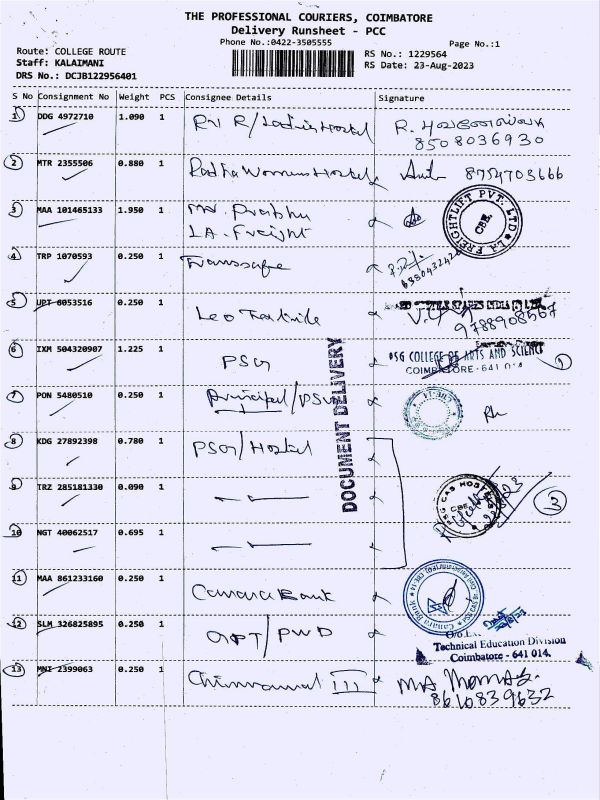 THE PROFESSIONAL COURIERS, COIMBATORE
Delivery Runsheet - PCC
Phone No.:0422-3505555
Page No.:1
Route: COLLEGE ROUTE
RS No.: 1229564
Staff: KALAIMANI
RS Date: 23-Aug-2023
DRS No.: DCJB122956401
S No Consignment No Weight PCS Consignee Details Signature
1 DDG 4972710 1.090 1 Ladies Hostel
8508036930
2 MTR 2355506 0.880 1 Radha Womens Hostel 8754703666
3 MAA 101465133 1.950 1 Mr. Prabhu
LA. Freight
LA FREIGHTLIFT PVT. LTD
CBE.
4 TRP 1070593 0.250 1 Transsafe
5 UPT 6053516 0.250 1 Leo
9788908567
6 IXM 504320907 1.225 1 PSG
PSG COLLEGE OF ARTS AND SCIENCE
COIMBATORE - 641 014
1
7 PON 5480510 0.250 1 Principal/PSG
DOCUMENT DELIVERY
8 KDG 27892398 0.780 1 PSG/Hostel
9 TRZ 285181330 0.090 1
PSG CAS HOSTEL
CBE
3
10 NGT 40062517 0.695 1
11 MAA 861233160 0.250 1 Canara Bank
Canara Bank
12 SLM 326825895 0.250 1 GPT/PWD
Technical Education Division
Coimbatore - 641 014.
13 MNI 2399063 0.250 1 Chinnammal III
8610839632